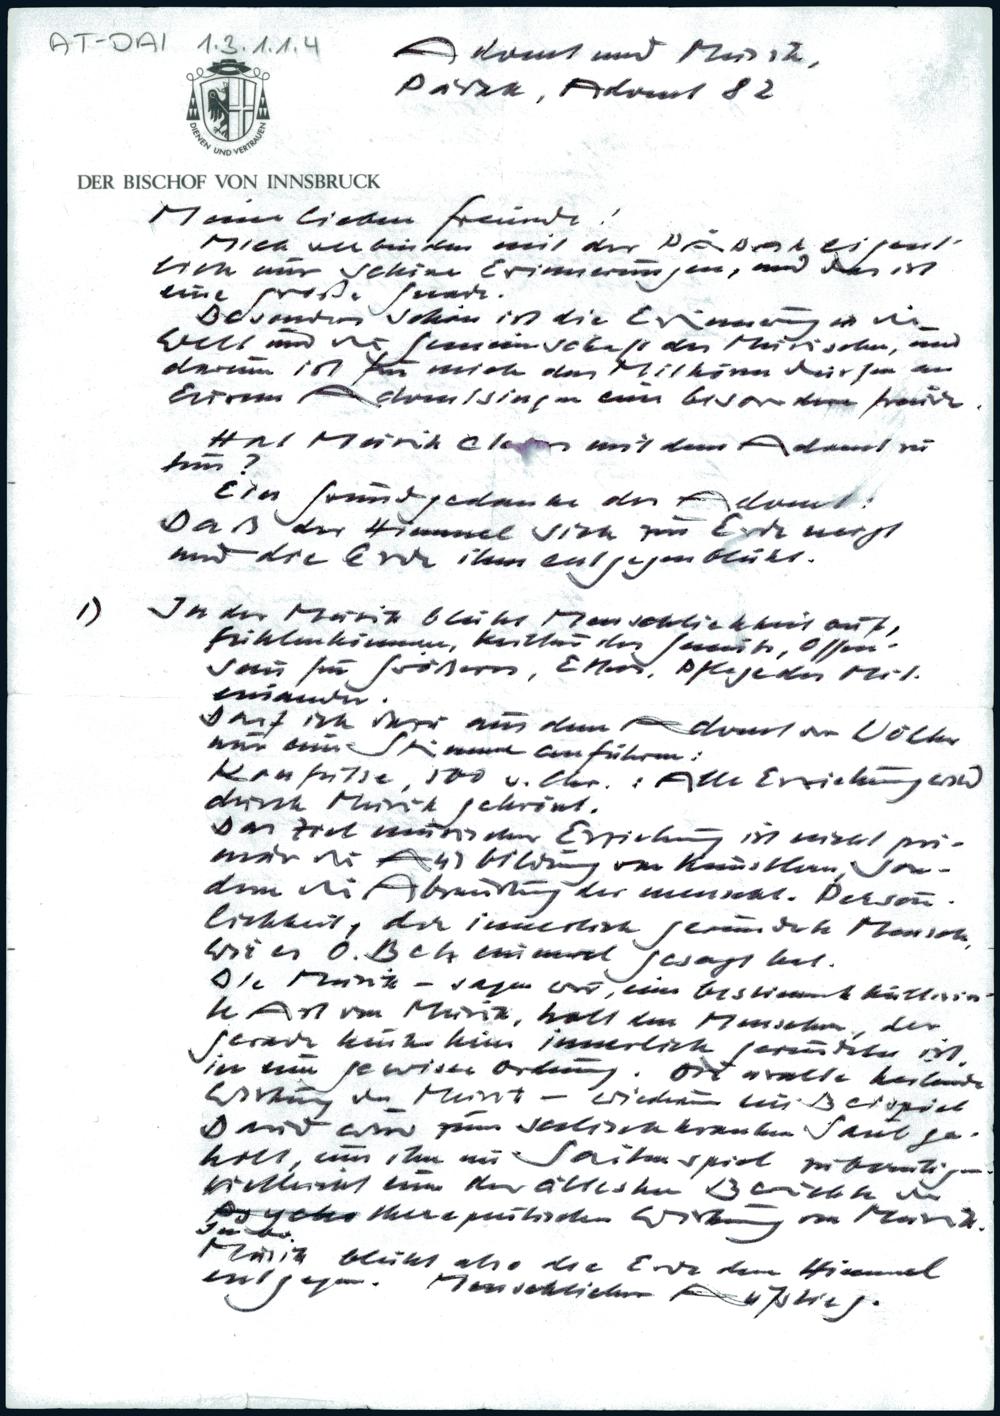 AT-DAI 1.3.1.1.4
Advent und Musik,
Pädak, Advent 82
DIENEN UND VERTRAUEN
DER BISCHOF VON INNSBRUCK
Meine lieben Freunde!
Mich verbinden mit der PÄDAK eigent-
lich nur schöne Erinnerungen, und das ist
eine große Gnade.
Besonders schön ist die Erinnerung an die
Welt und die Gemeinschaft des Musischen, und
darum ist für mich das Mithören dürfen an
Eurem Adventsingen eine besondere Freude.
Hat Musik etwas mit dem Advent zu
tun?
Ein Grundgedanke des Advent:
Daß der Himmel sich zur Erde neigt
und die Erde ihm entgegenblüht.
1) In der Musik blüht Menschlichkeit auf,
Fühlenkönnen, Kultur des Gemüts, Offen-
sein für Größeres, Ethos, Pflege des Mit-
einander.
Darf ich dazu aus dem Advent der Völker
nur eine Stimme anführen:
Konfutse, 500 v. Chr.: Alle Erziehung wird
durch Musik gekrönt.
Das Ziel musischer Erziehung ist nicht pri-
mär die Ausbildung von Künstlern, son-
dern die Abrundung der menschl. Persön-
lichkeit, der innerlich gerundete Mensch,
wie es O. Betz einmal gesagt hat.
Die Musik – sagen wir, eine bestimmte kultivier-
te Art von Musik, holt den Menschen, der
gerade heute kein innerlich gerundeter ist,
in eine gewisse Ordnung. Die uralte heilende
Wirkung der Musik – wiederum ein Beispiel
David wird zum seelisch kranken Saul ge-
holt, um ihn mit Saitenspiel zu beruhigen
vielleicht einer der ältesten Berichte der
Psychotherapeutischen Wirkung von Musik.
In der
Musik blüht also die Erde dem Himmel
entgegen. Menschlicher Aufstieg.